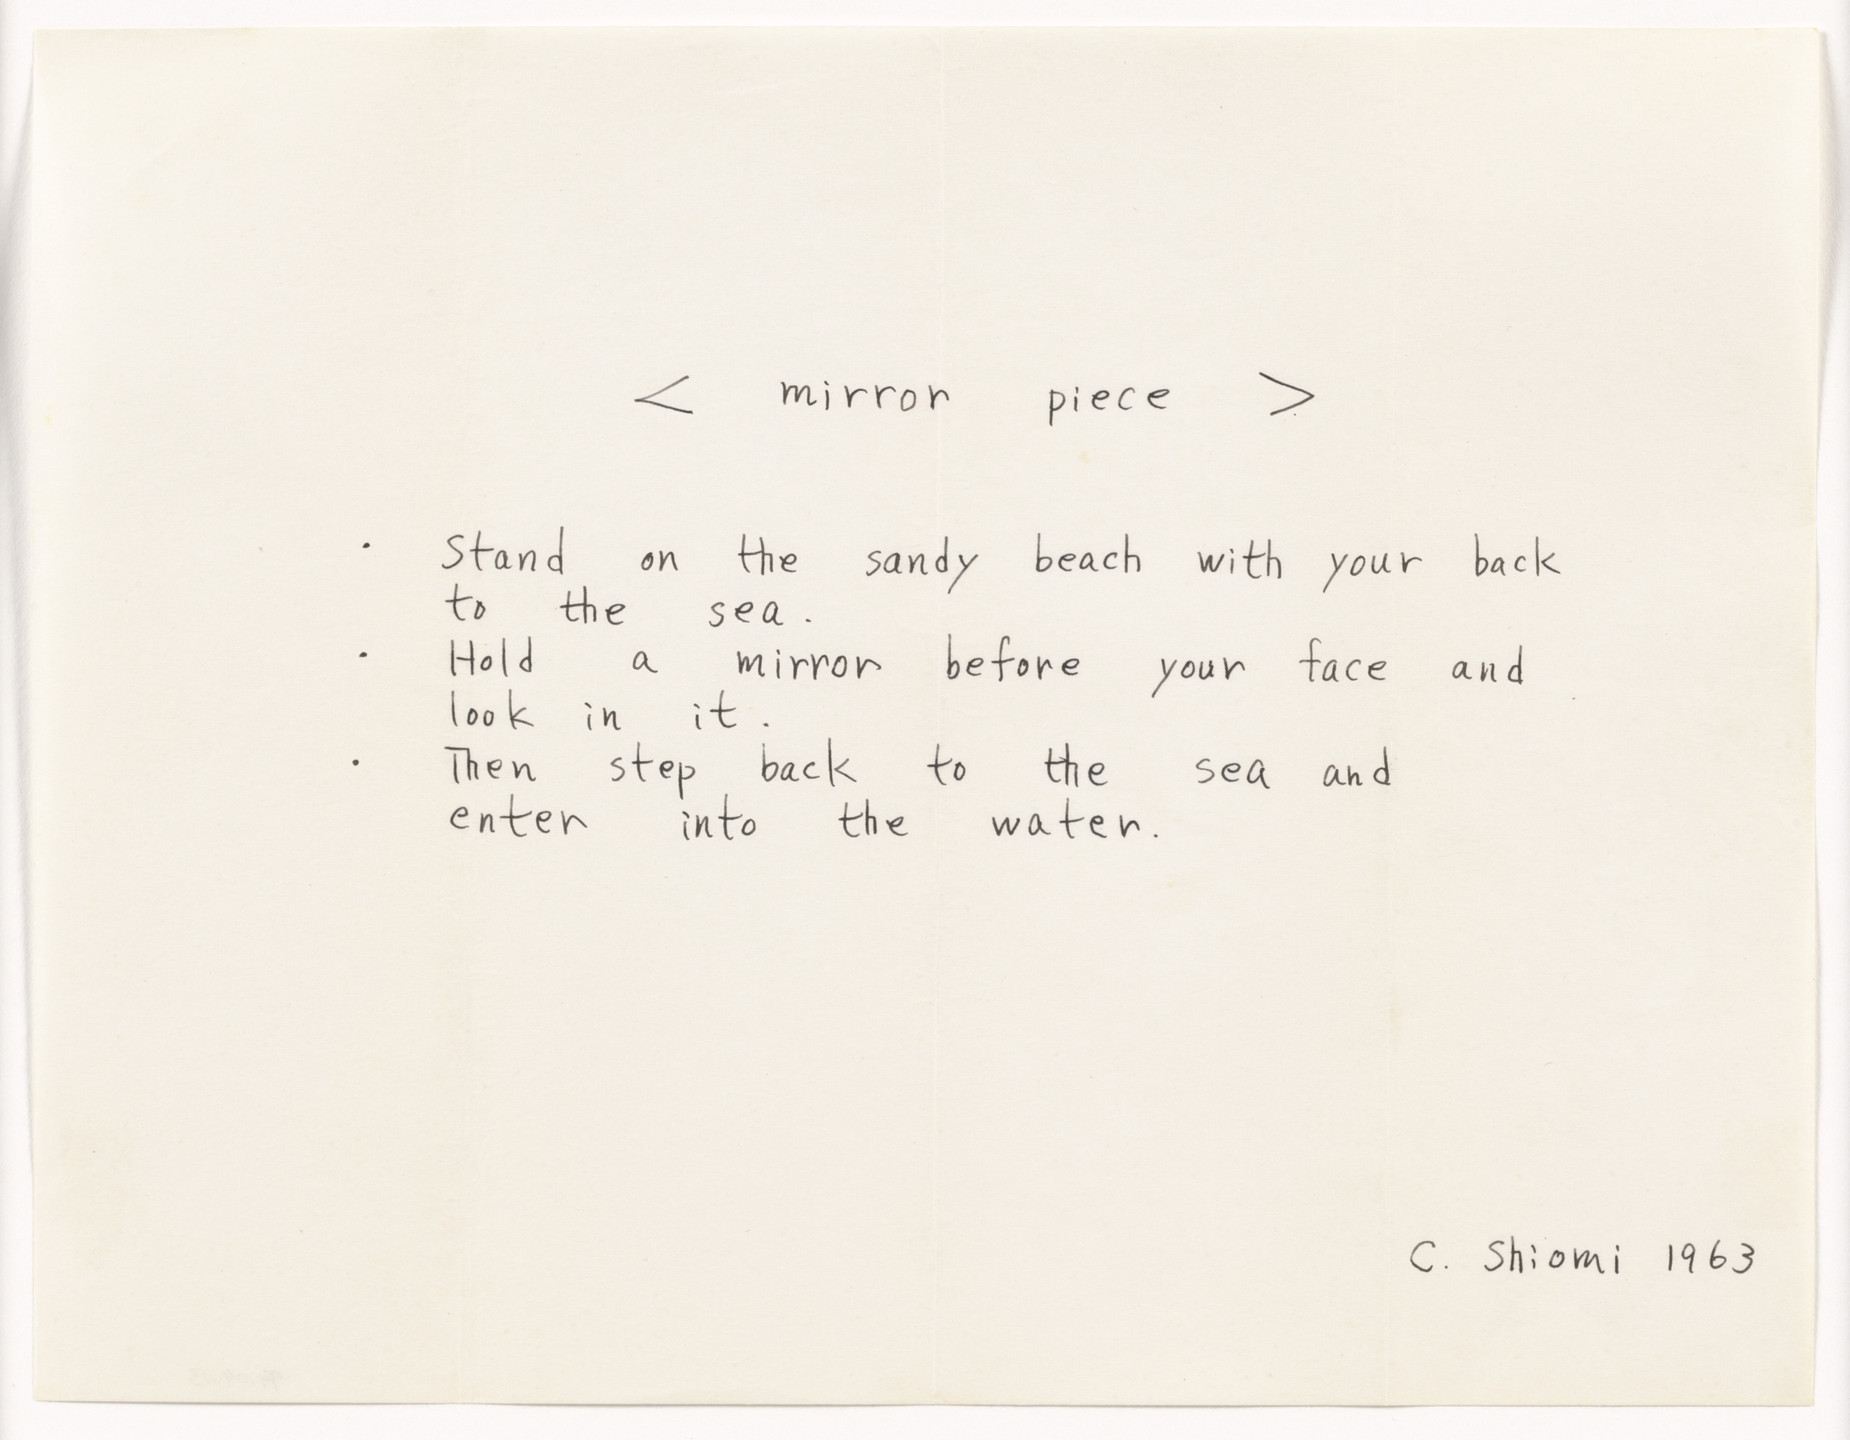 < mirror piece >
· Stand on the sandy beach with your back
to the sea.
· Hold a mirror before your face and
look in it.
· Then step back to the sea and
enter into the water.
C. Shiomi 1963